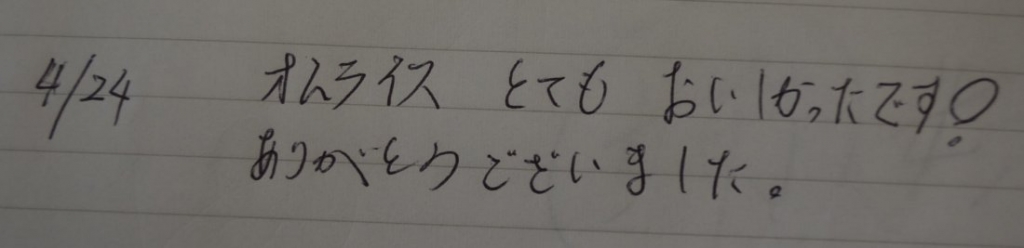 4/24 オムライス とても おいしかったです!
ありがとうございました。